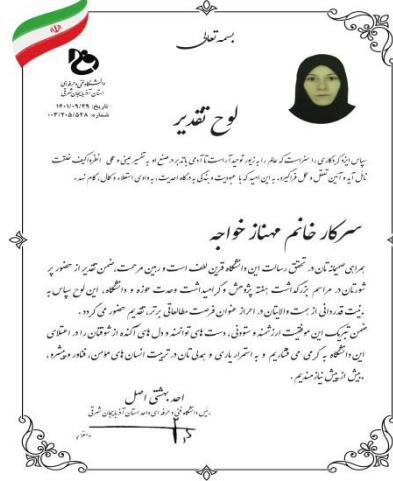 بسمه تعالی
دانشگاه فنی و حرفه‌ای
استان آذربایجان شرقی
تاریخ: ۱۴۰۱/۰۹/۲۹
شماره: ۰۰۳/۲۰۵/۵۲۸
لوح تقدیر
سپاس ایزد کردگاری را سزاست که عالم را به زیور توحید آراست تا آدمی با تدبر در صنع او به تفسیر عینی و عملی انظروا کیف خلقت
نائل آید و آیین تعقل و عمل فراگیرد، به این امید که با عبودیت و بندگی به درگاه احدیت، به وادی استعلاء و کمال، گام نهد.
سرکار خانم مهناز خواجه
همراهی صمیمانه تان در تحقق رسالت این دانشگاه قرین لطف است و رهین مرحمت، ضمن تقدیر از حضور پر
شورتان در مراسم بزرگداشت هفته پژوهش و گرامیداشت وحدت حوزه و دانشگاه، این لوح سپاس به
نیت قدردانی از همت والایتان در احراز عنوان فرصت مطالعاتی برتر، تقدیم حضور می گردد.
ضمن تبریک این موفقیت ارزشمند و ستودنی، دست های توانمند و دل های آکنده از شوقتان را در اعتلای
این دانشگاه به گرمی می فشاریم و به استمرار یاری و همدلی تان در تربیت انسان های مؤمن، فناور و پیشرو،
بیش از پیش نیازمندیم.
احد بهشتی اصل
رئیس دانشگاه فنی و حرفه ای واحد استان آذربایجان شرقی